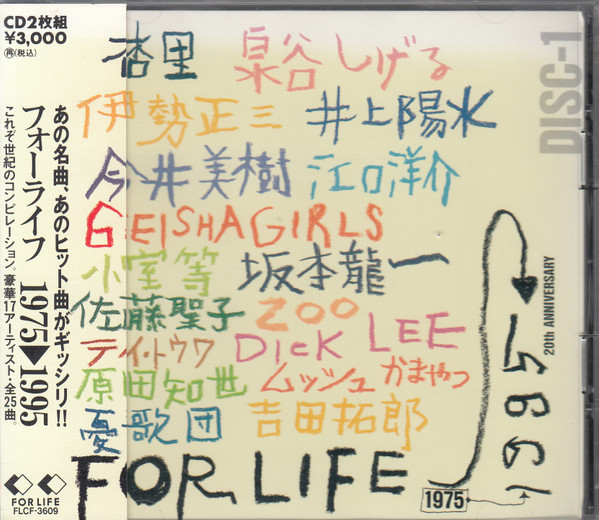 CD2枚組
¥3,000
再(税込)
あの名曲、あのヒット曲がギッシリ!!
フォーライフ 1975▶1995
これぞ世紀のコンピレーション。豪華17アーティスト・全25曲。
FOR LIFE
FLCF-3609
杏里 泉谷しげる
伊勢正三 井上陽水
今井美樹 江口洋介
GEISHA GIRLS
小室等 坂本龍一
佐藤聖子 ZOO
テイ・トウワ DICK LEE
原田知世 ムッシュかまやつ
憂歌団 吉田拓郎
FOR LIFE
1975
1995
20th ANNIVERSARY
DISC-1